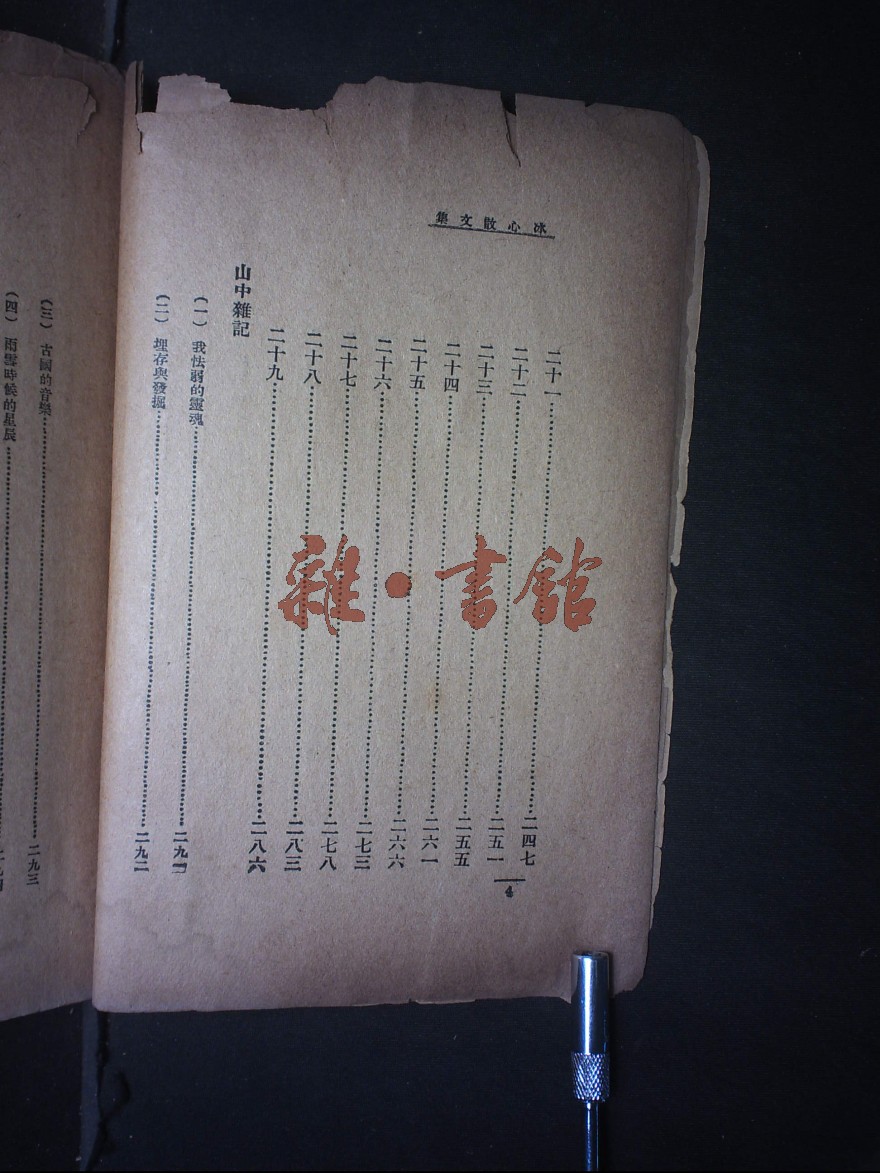 冰心散文集
二十一……二四七
二十二……二五一
二十三……二五五
二十四……二六一
二十五……二六六
二十六……二七三
二十七……二七八
二十八……二八三
二十九……二八六
山中雜記
(一) 我怯弱的靈魂……
(二) 埋存與發掘……二九二
4
(三) 古國的音樂……二九三
(四) 雨雪時候的星辰……
雜·書館